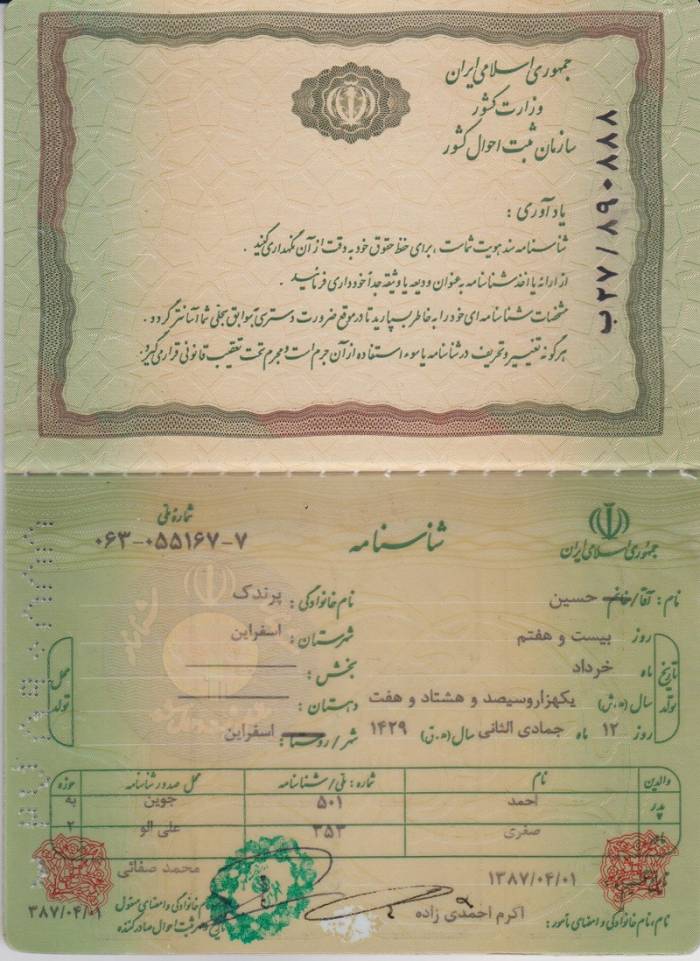 جمهوری اسلامی ایران
وزارت کشور
سازمان ثبت احوال کشور
ب۲۷/۸۹۰۸۸۸
یادآوری :
شناسنامه سند هویت شماست ، برای حفظ حقوق خود به دقت از آن نگهداری کنید .
از ارائه یا اخذ شناسنامه به عنوان ودیعه یا وثیقه جداً خودداری فرمائید .
مشخصات شناسنامه ای خود را به خاطر بسپارید تا در موقع ضرورت دسترسی به سوابق سجلی شما آسانتر گردد .
هرگونه تغییر و تحریف در شناسنامه یا سوء استفاده از آن جرم است و مجرم تحت تعقیب قانونی قرار می گیرد .
جمهوری اسلامی ایران
شناسنامه
شماره ملی
۰۶۳-۰۵۵۱۶۷-۷
نام : آقا/خانم حسین
نام خانوادگی : پرندک
تاریخ تولد
روز بیست و هفتم
ماه خرداد
سال (ه.ش) یکهزاروسیصد و هشتاد و هفت
روز ۱۲ ماه جمادی الثانی سال (ه.ق) ۱۴۲۹
محل تولد
شهرستان : اسفراین
بخش :
دهستان :
شهر/روستا : اسفراین
والدین نام شماره : ملی/شناسنامه محل صدور شناسنامه حوزه
پدر احمد ۵۰۱ جوین به
مادر صغری ۳۵۳ علی الو ۲
۱۳۸۷/۰۴/۰۱
نام، نام خانوادگی و امضای مأمور : اکرم احمدی زاده
محمد صفائی
نام خانوادگی و امضای مسئول
ثبت احوال صادرکننده
۳۸۷/۰۴/۰۱